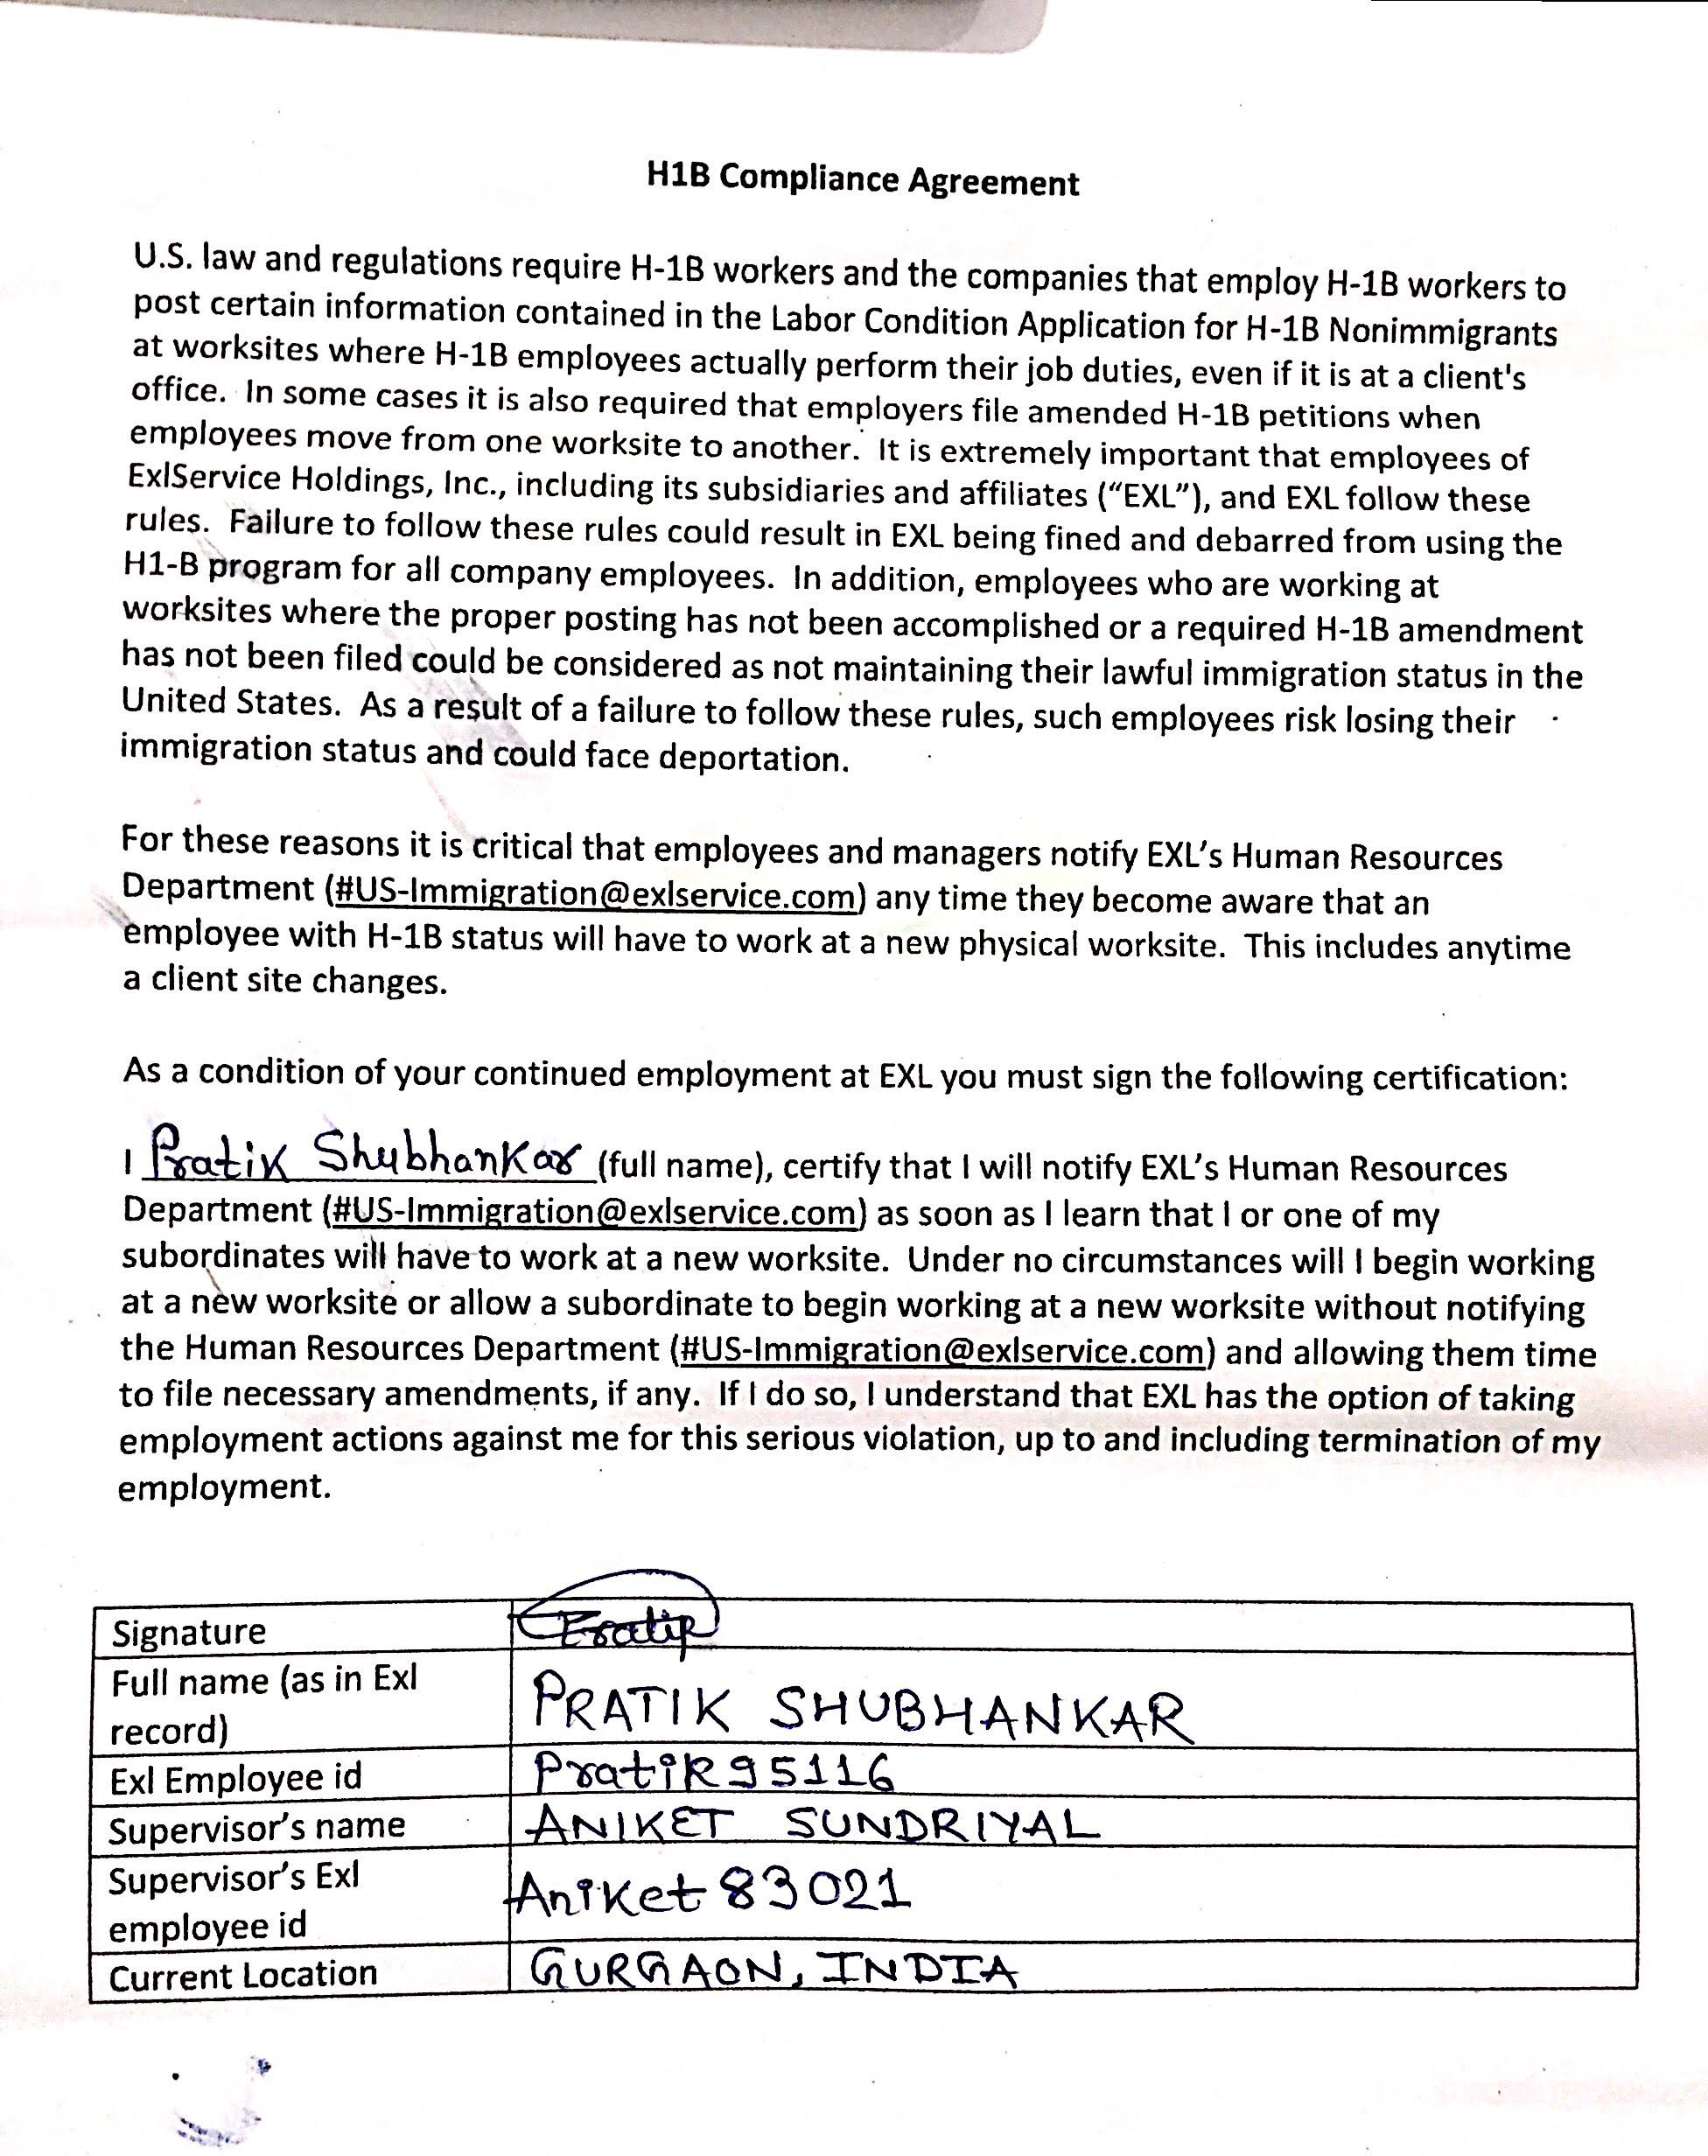 H1B Compliance Agreement
U.S. law and regulations require H-1B workers and the companies that employ H-1B workers to
post certain information contained in the Labor Condition Application for H-1B Nonimmigrants
at worksites where H-1B employees actually perform their job duties, even if it is at a client's
office. In some cases it is also required that employers file amended H-1B petitions when
employees move from one worksite to another. It is extremely important that employees of
ExlService Holdings, Inc., including its subsidiaries and affiliates (“EXL”), and EXL follow these
rules. Failure to follow these rules could result in EXL being fined and debarred from using the
H1-B program for all company employees. In addition, employees who are working at
worksites where the proper posting has not been accomplished or a required H-1B amendment
has not been filed could be considered as not maintaining their lawful immigration status in the
United States. As a result of a failure to follow these rules, such employees risk losing their
immigration status and could face deportation.
For these reasons it is critical that employees and managers notify EXL’s Human Resources
Department (#US-Immigration@exlservice.com) any time they become aware that an
employee with H-1B status will have to work at a new physical worksite. This includes anytime
a client site changes.
As a condition of your continued employment at EXL you must sign the following certification:
I Pratik Shubhankar (full name), certify that I will notify EXL’s Human Resources
Department (#US-Immigration@exlservice.com) as soon as I learn that I or one of my
subordinates will have to work at a new worksite. Under no circumstances will I begin working
at a new worksite or allow a subordinate to begin working at a new worksite without notifying
the Human Resources Department (#US-Immigration@exlservice.com) and allowing them time
to file necessary amendments, if any. If I do so, I understand that EXL has the option of taking
employment actions against me for this serious violation, up to and including termination of my
employment.
Signature
Full name (as in Exl
record) PRATIK SHUBHANKAR
Exl Employee id Pratik95116
Supervisor’s name ANIKET SUNDRIYAL
Supervisor’s Exl
employee id Aniket83021
Current Location GURGAON, INDIA